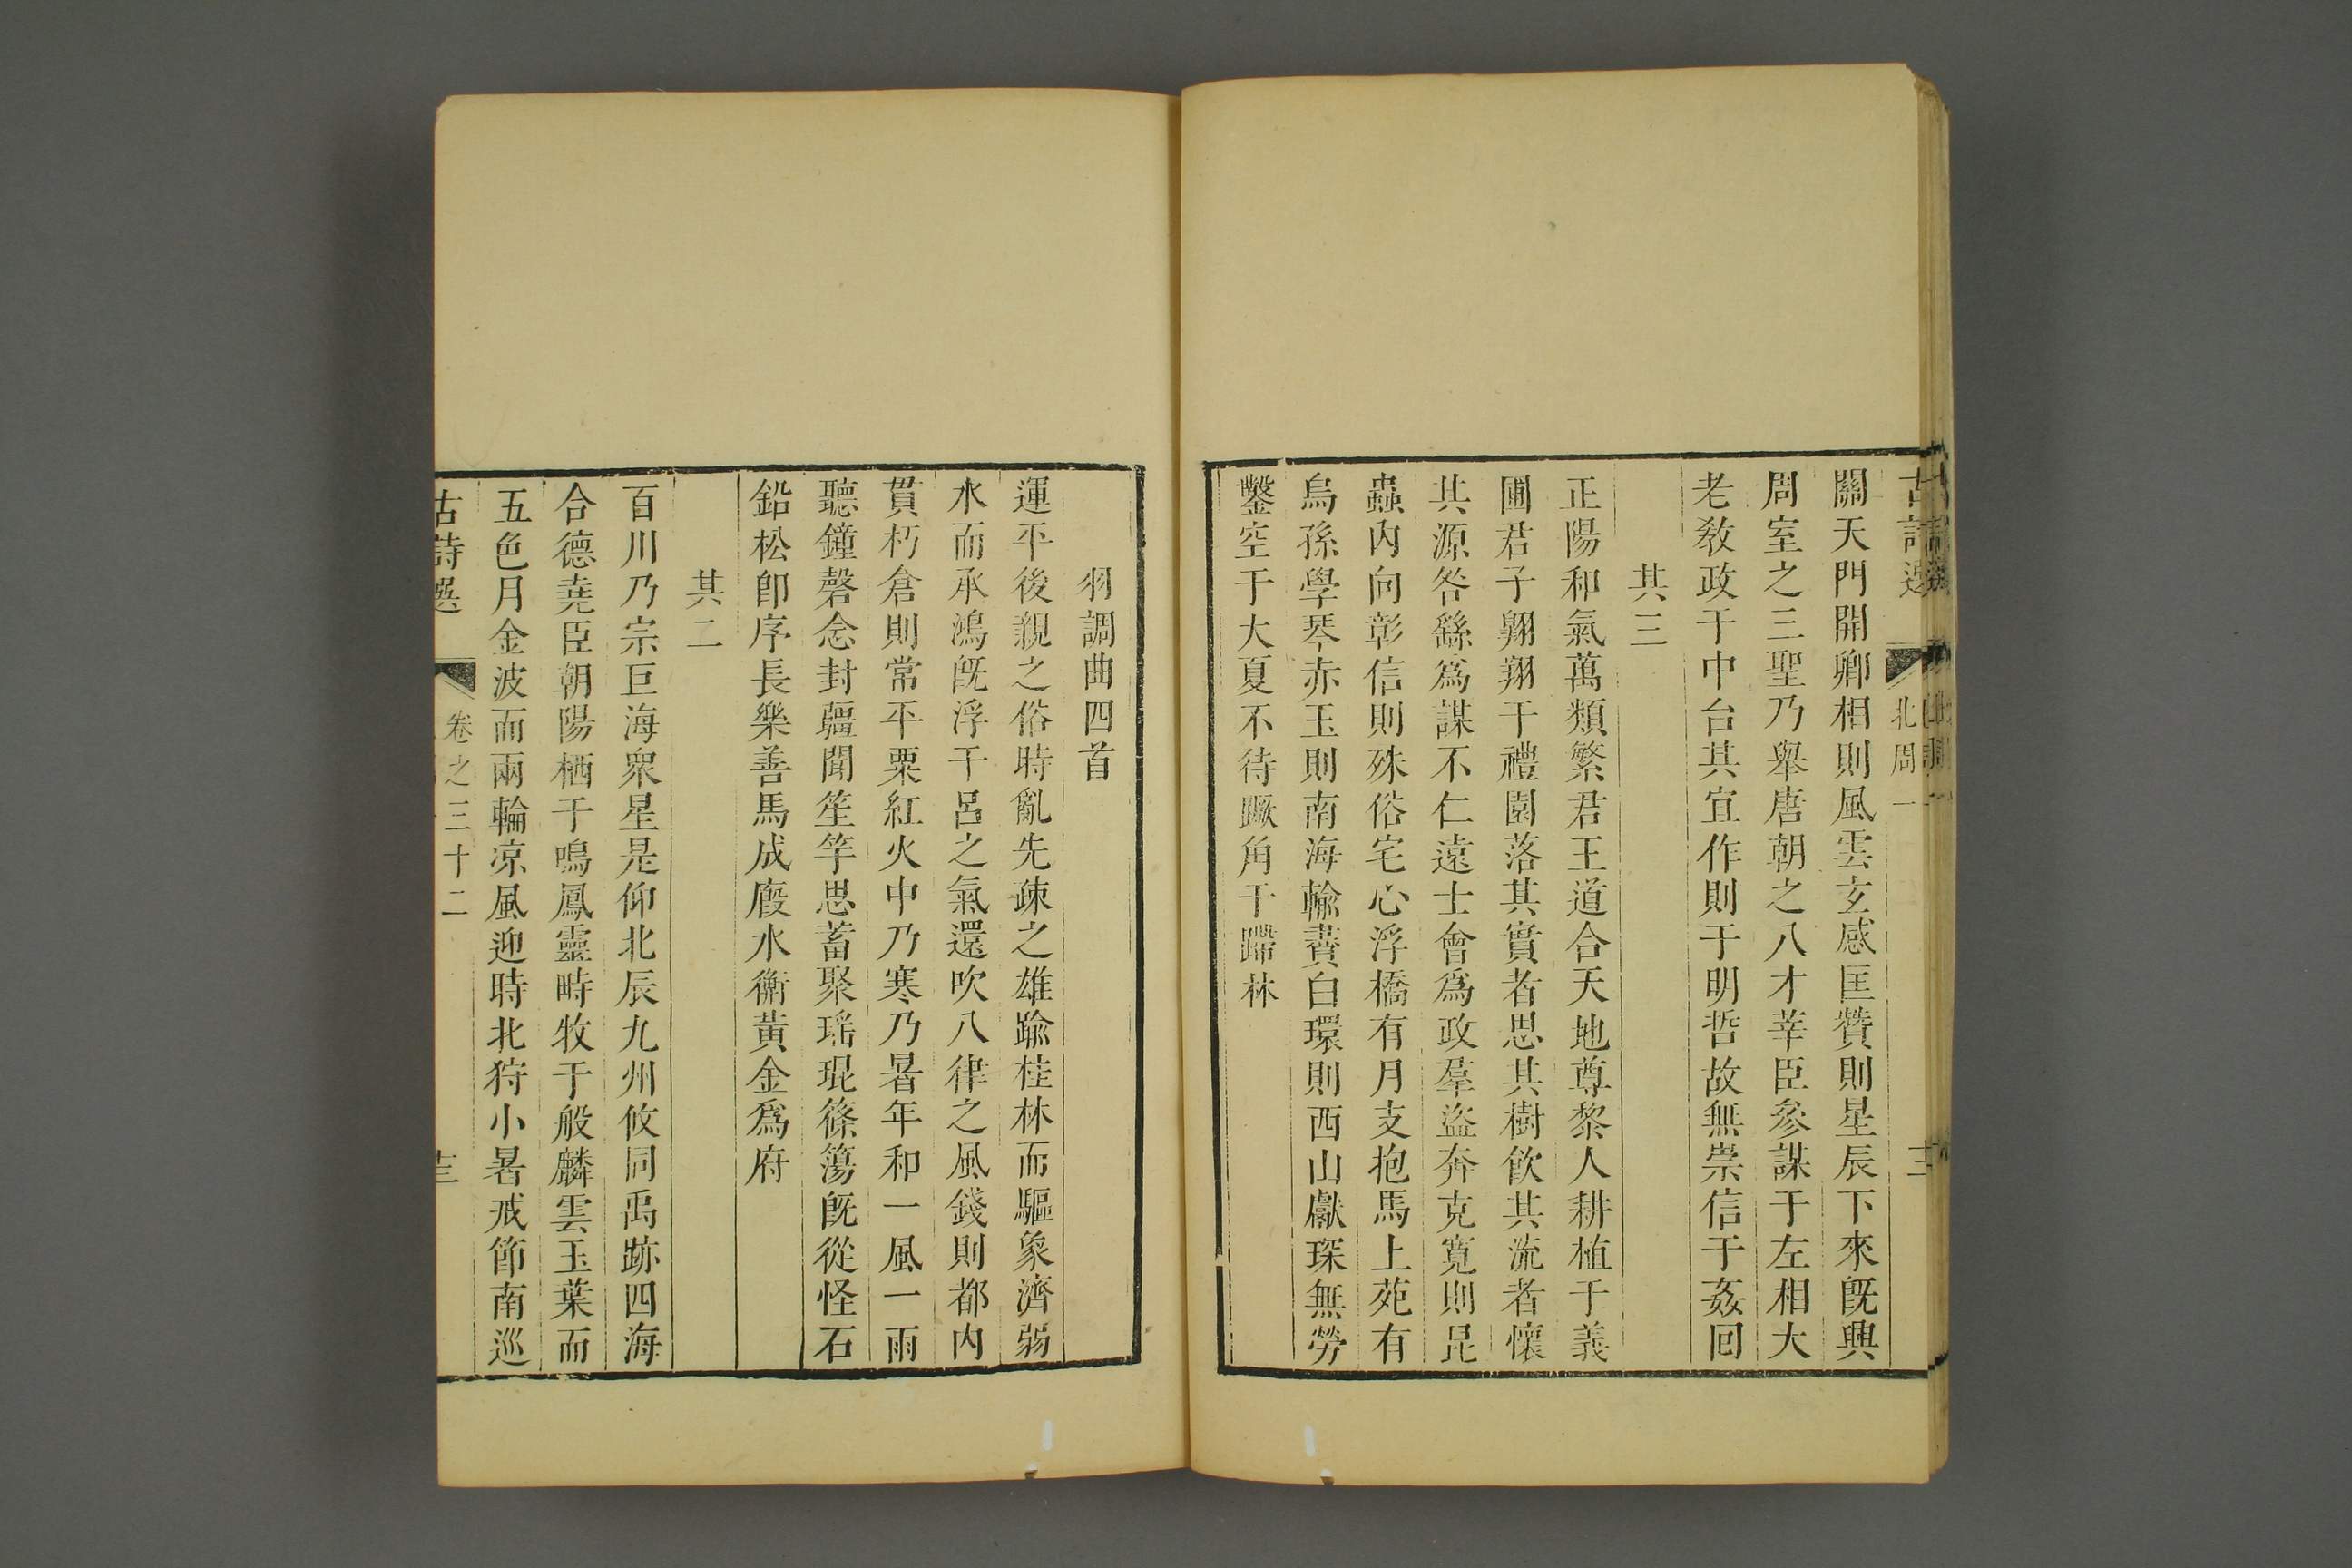 古詩選 北周一 十二
關天門開卿相則風雲玄感匡贊則星辰下來旣興
周室之三聖乃舉唐朝之八才莘臣參謀于左相大
老敎政于中台其宜作則于明哲故無崇信于姦回
其三
正陽和氣萬類繁君王道合天地尊黎人耕植于義
圃君子翺翔于禮園落其實者思其樹飮其流者懷
其源咎繇爲謀不仁遠士會爲政羣盜奔克寛則昆
蟲內向彰信則殊俗宅心浮橋有月支抱馬上苑有
烏孫學琴赤玉則南海輸賮白環則西山獻琛無勞
鑿空于大夏不待蹶角于蹛林
羽調曲四首
運平後親之俗時亂先疎之雄踰桂林而驅象濟弱
水而承鴻旣浮干呂之氣還吹八律之風錢則都內
貫朽倉則常平粟紅火中乃寒乃暑年和一風一雨
聽鐘磬念封疆聞笙竽思蓄聚瑤琨篠簜旣從怪石
鉛松卽序長樂善馬成廄水衡黃金爲府
其二
百川乃宗巨海衆星是仰北辰九州攸同禹跡四海
合德堯臣朝陽栖于鳴鳳靈畤牧于般麟雲玉葉而
五色月金波而兩輪凉風迎時北狩小暑戒節南巡
古詩選 卷之三十二 十三